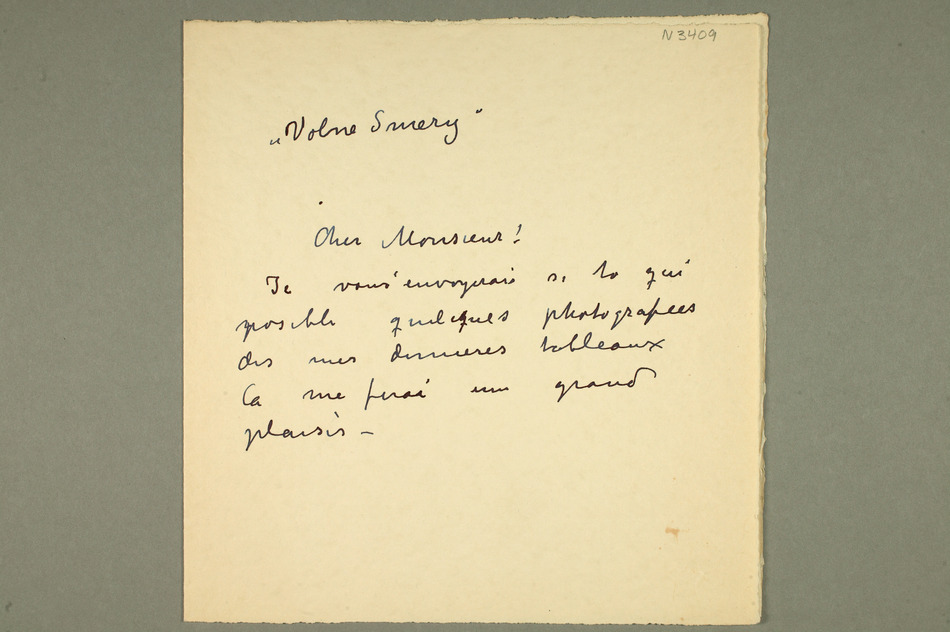 N 3409
„Volne Smery"
Cher Monsieur!
Je vous envoyerais si to qui
posible quelques photografees
des mes dernieres tableaux
Ca me ferai une grand
plaisir –